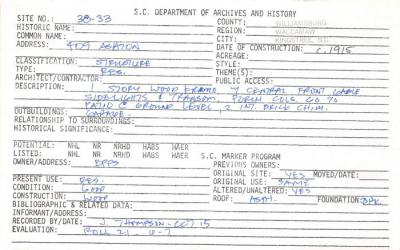 S.C. DEPARTMENT OF ARCHIVES AND HISTORY
SITE NO.: 38-33
COUNTY: WILLIAMSBURG
HISTORIC NAME:
REGION: WACCAMAW
COMMON NAME:
CITY: KINGSTREE, S.C.
ADDRESS: 409 ASHTON
DATE OF CONSTRUCTION: c. 1915
ACREAGE:
CLASSIFICATION: STRUCTURE
STYLE:
TYPE: RES.
THEME(S):
ARCHITECT/CONTRACTOR:
PUBLIC ACCESS:
DESCRIPTION: 1 STORY WOOD FRAME W/ CENTRAL FRONT GABLE
SIDELIGHTS & TRANSOM, PORCH COLS GO TO
PATIO @ GROUND LEVEL, 2 INT. BRICK CHIM.
OUTBUILDINGS: GARAGE
RELATIONSHIP TO SURROUNDINGS:
HISTORICAL SIGNIFICANCE:
POTENTIAL: NHL NR NRHD HABS HAER
LISTED: NHL NR NRHD HABS HAER S.C. MARKER PROGRAM
OWNER/ADDRESS: EPPS
PREVIOUS OWNERS:
ORIGINAL SITE: YES MOVED/DATE:
PRESENT USE: RES.
ORIGINAL USE: SAME
CONDITION: GOOD
ALTERED/UNALTERED: YES
CONSTRUCTION: WOOD
ROOF: ASPH. FOUNDATION: BRK.
BIBLIOGRAPHIC & RELATED DATA:
INFORMANT/ADDRESS:
RECORDED BY/DATE: J. THOMPSON - OCT 15
EVALUATION: ROLL 21, 6-7